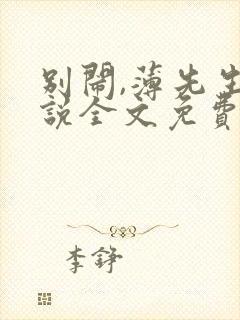 别闹,薄先生
説全文免費
李錚